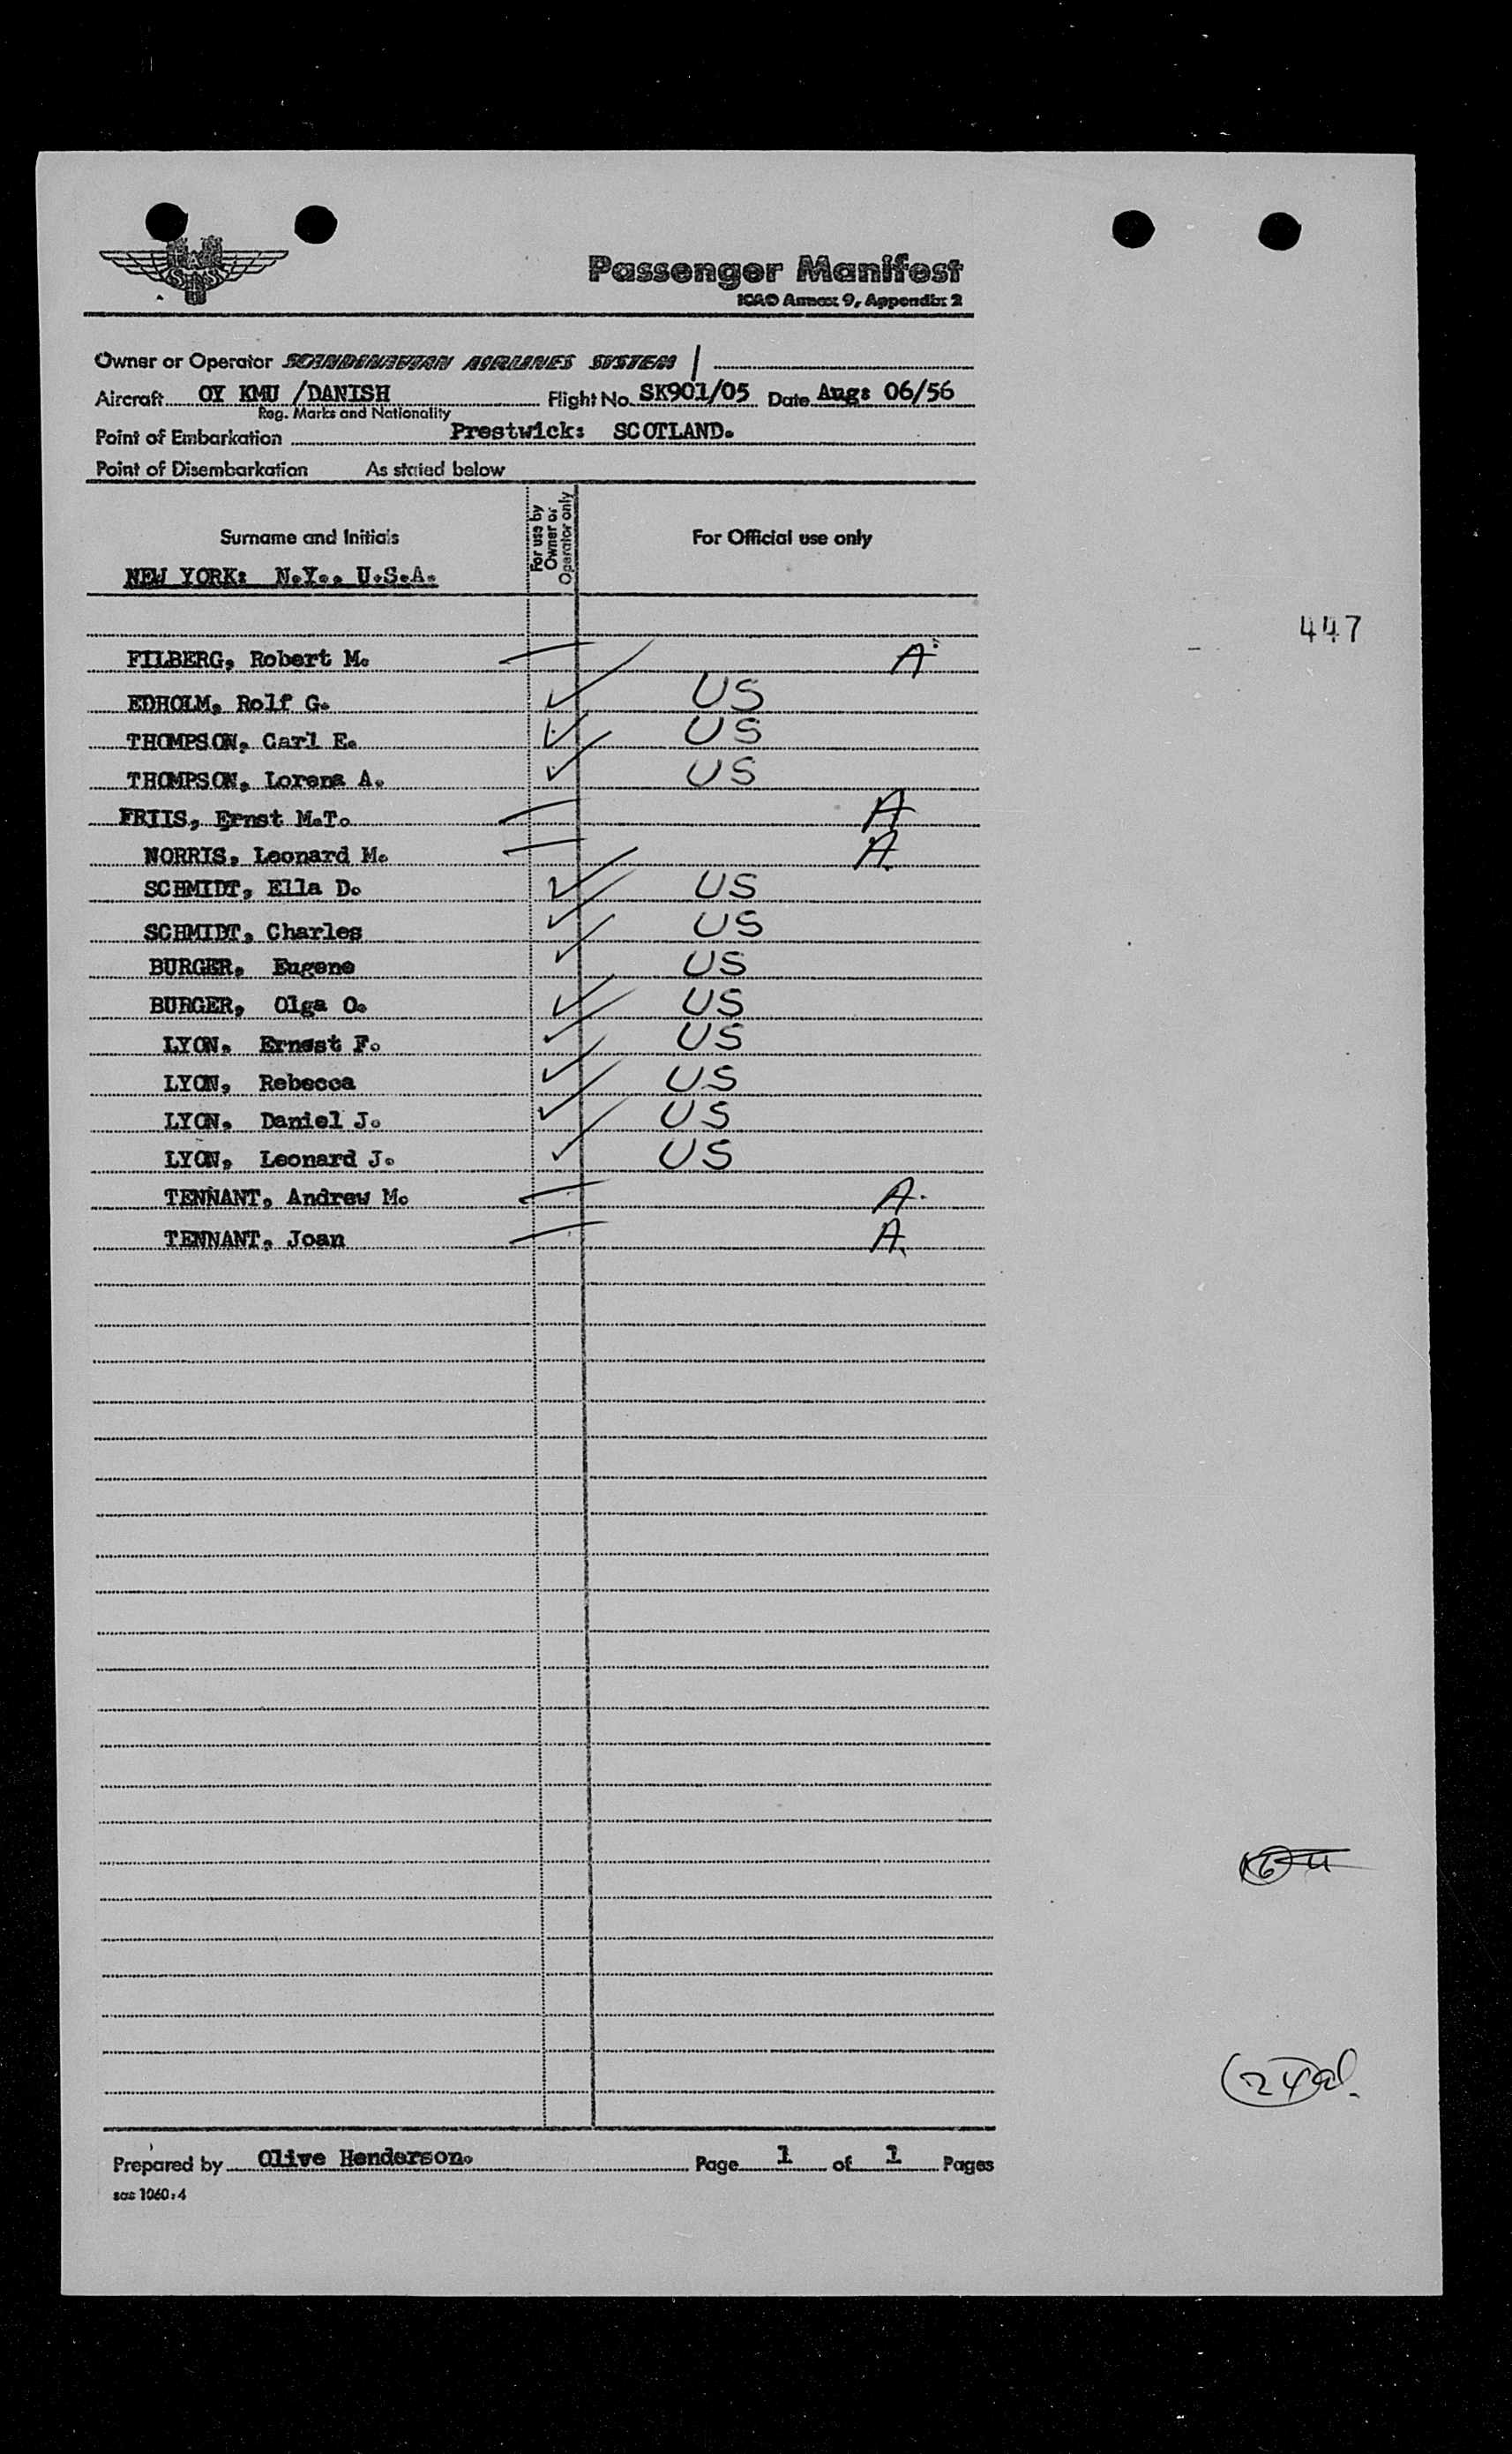 SAS
Passenger Manifest
ICAO Annex 9, Appendix 2
Owner or Operator SCANDINAVIAN AIRLINES SYSTEM
Aircraft OY KMU /DANISH Flight No. SK901/05 Date Aug: 06/56
Reg. Marks and Nationality
Point of Embarkation Prestwick: SCOTLAND.
Point of Disembarkation As stated below
Surname and Initials For use by Owner or Operator only For Official use only
NEW YORK: N.Y., U.S.A.
447
FILBERG, Robert M. A
EDHOLM, Rolf G. US
THOMPSON, Carl E. US
THOMPSON, Lorena A. US
FRIIS, Ernst M.T. A
NORRIS, Leonard M. A
SCHMIDT, Ella D. US
SCHMIDT, Charles US
BURGER, Eugene US
BURGER, Olga O. US
LYON, Ernest F. US
LYON, Rebecca US
LYON, Daniel J. US
LYON, Leonard J. US
TENNANT, Andrew M. A.
TENNANT, Joan A
Prepared by Olive Henderson. Page 1 of 1 Pages
sas 1060:4